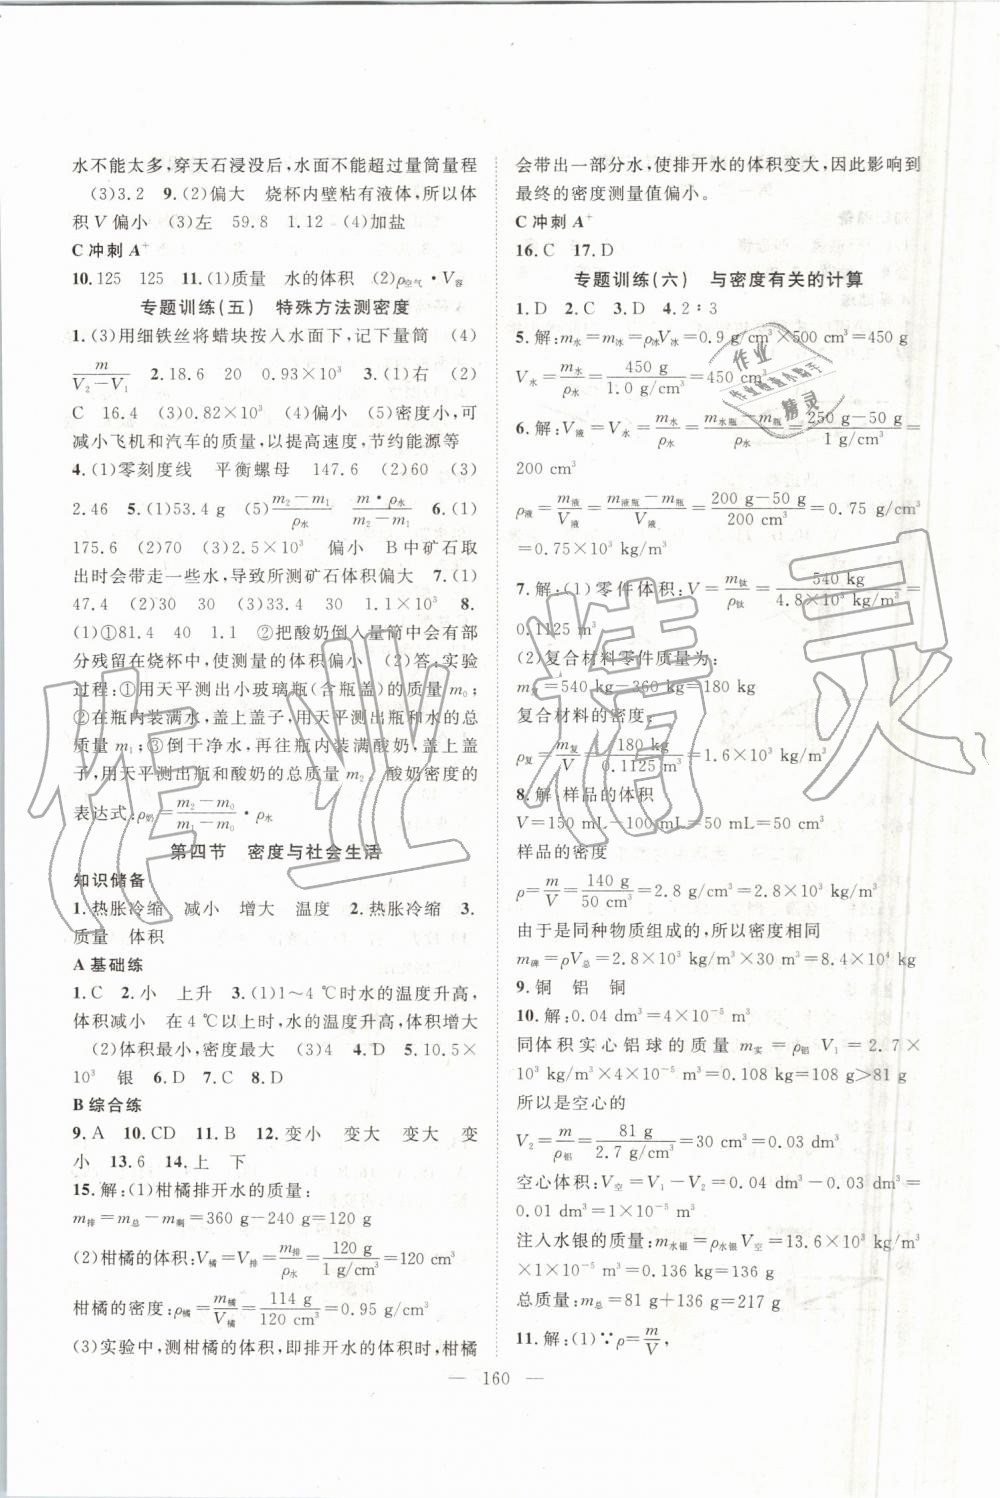 水不能太多,穿天石浸没后,水面不能超过量筒量程
(3)3.2 9.(2)偏大 烧杯内壁粘有液体,所以体
积V偏小 (3)左 59.8 1.12 (4)加盐
C 冲刺 A⁺
10.125 125 11.(1)质量 水的体积 (2)ρ空气·V容
专题训练(五) 特殊方法测密度
1.(3)用细铁丝将蜡块按入水面下,记下量筒 (4)
m/(V₂－V₁) 2.18.6 20 0.93×10³ 3.(1)右 (2)
C 16.4 (3)0.82×10³ (4)偏小 (5)密度小,可
减小飞机和汽车的质量,以提高速度,节约能源等
4.(1)零刻度线 平衡螺母 147.6 (2)60 (3)
2.46 5.(1)53.4 g (5)(m₂－m₁)/ρ水 (m·ρ水)/(m₂－m₁) 6.(1)
175.6 (2)70 (3)2.5×10³ 偏小 B中矿石取
出时会带走一些水,导致所测矿石体积偏大 7.(1)
47.4 (2)30 30 (3)33.4 30 1.1×10³ 8.
(1)①81.4 40 1.1 ②把酸奶倒入量筒中会有部
分残留在烧杯中,使测量的体积偏小 (2)答:实验
过程:①用天平测出小玻璃瓶(含瓶盖)的质量 m₀;
②在瓶内装满水,盖上盖子,用天平测出瓶和水的总
质量 m₁;③倒干净水,再往瓶内装满酸奶,盖上盖
子,用天平测出瓶和酸奶的总质量 m₂。酸奶密度的
表达式:ρ奶＝(m₂－m₀)/(m₁－m₀)·ρ水
第四节 密度与社会生活
知识储备
1.热胀冷缩 减小 增大 温度 2.热胀冷缩 3.
质量 体积
A 基础练
1.C 2.小 上升 3.(1)1～4 ℃时水的温度升高,
体积减小 在4 ℃以上时,水的温度升高,体积增大
(2)体积最小,密度最大 (3)4 4.D 5.10.5×
10³ 银 6.D 7.C 8.D
B 综合练
9.A 10.CD 11.B 12.变小 变大 变大 变
小 13.6 14.上 下
15.解:(1)柑橘排开水的质量:
m排＝m总－m剩＝360 g－240 g＝120 g
(2)柑橘的体积:V橘＝V排＝m排/ρ水＝120 g/(1 g/cm³)＝120 cm³
柑橘的密度:ρ橘＝m橘/V橘＝114 g/120 cm³＝0.95 g/cm³
(3)实验中,测柑橘的体积,即排开水的体积时,柑橘
会带出一部分水,使排开水的体积变大,因此影响到
最终的密度测量值偏小。
C 冲刺 A⁺
16.C 17.D
专题训练(六) 与密度有关的计算
1.D 2.C 3.D 4.2∶3
5.解:m水＝m冰＝ρ冰V冰＝0.9 g/cm³×500 cm³＝450 g
V水＝m水/ρ水＝450 g/(1.0 g/cm³)＝450 cm³
6.解:V液＝V水＝m水/ρ水＝(m水瓶－m瓶)/ρ水＝(250 g－50 g)/(1 g/cm³)＝
200 cm³
ρ液＝m液/V液＝(m液瓶－m瓶)/V液＝(200 g－50 g)/200 cm³＝0.75 g/cm³
＝0.75×10³ kg/m³
7.解:(1)零件体积:V＝m钛/ρ钛＝540 kg/(4.8×10³ kg/m³)＝
0.1125 m³
(2)复合材料零件质量为:
m复＝540 kg－360 kg＝180 kg
复合材料的密度:
ρ复＝m复/V＝180 kg/0.1125 m³＝1.6×10³ kg/m³
8.解:样品的体积
V＝150 mL－100 mL＝50 mL＝50 cm³
样品的密度
ρ＝m/V＝140 g/50 cm³＝2.8 g/cm³＝2.8×10³ kg/m³
由于是同种物质组成的,所以密度相同
m碑＝ρV总＝2.8×10³ kg/m³×30 m³＝8.4×10⁴ kg
9.铜 铝 铜
10.解:0.04 dm³＝4×10⁻⁵ m³
同体积实心铝球的质量 m实＝ρ铝 V₁＝2.7×
10³ kg/m³×4×10⁻⁵ m³＝0.108 kg＝108 g＞81 g
所以是空心的
V₂＝m/ρ铝＝81 g/(2.7 g/cm³)＝30 cm³＝0.03 dm³
空心体积:V空＝V₁－V₂＝0.04 dm³－0.03 dm³＝
0.01 dm³＝1×10⁻⁵ m³
注入水银的质量:m水银＝ρ水银V空＝13.6×10³ kg/m³
×1×10⁻⁵ m³＝0.136 kg＝136 g
总质量:m总＝81 g＋136 g＝217 g
11.解:(1)∵ρ＝m/V,
— 160 —
作业精灵